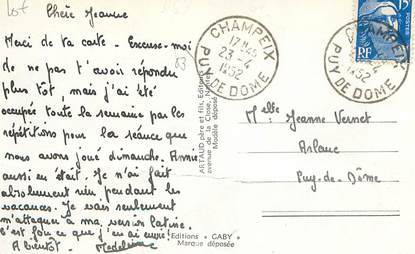 Lot
Chère Jeanne
Merci de ta carte. Excuse-moi
de ne pas t'avoir répondu
plus tôt, mais j'ai été
occupée toute la semaine par les
répétitions pour la séance que
nous avons joué dimanche. Annie
aussi en était. Je n'ai fait
absolument rien pendant les
vacances. Je vais seulement
m'attaquer à ma version latine.
C'est fou ce que j'en ai envie!
A Bientôt. Madeleine
83
ARTAUD père et fils, Editeurs
avenue de la Close, Nantes
Modèle déposé
Editions "GABY"
Marque déposée
CHAMPEIX
17H45
23-4
1952
PUY DE DOME
CHAMPEIX
1952
PUY DE DOME
15F
RF
Melle Jeanne Vernet
Arlanc
Puy-de-Dôme